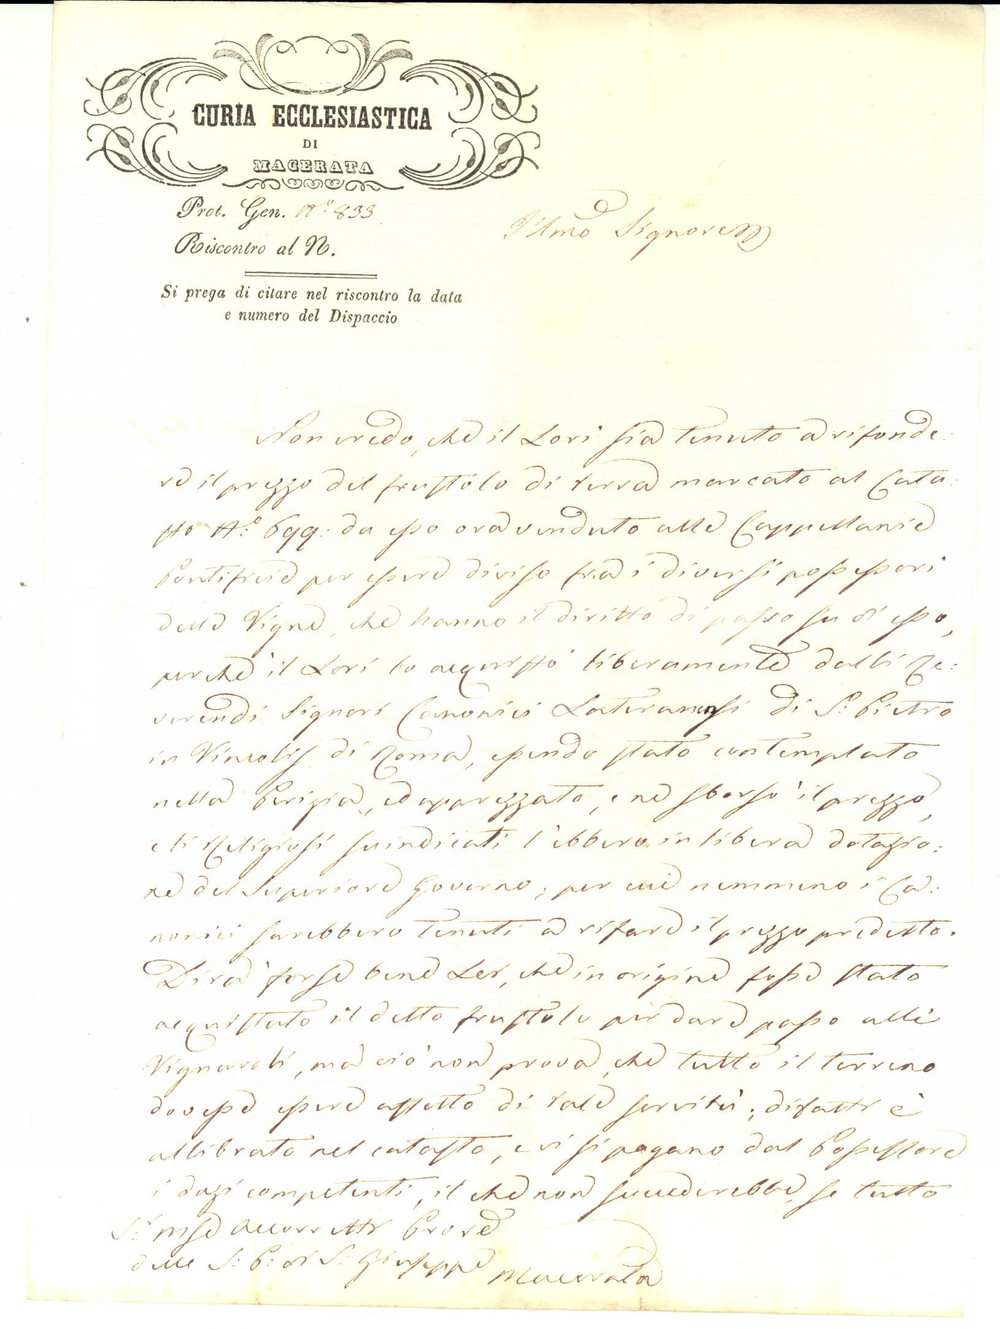 CURIA ECCLESIASTICA
DI
MACERATA
Prot. Gen. N.° 833
Riscontro al N.
Si prega di citare nel riscontro la data
e numero del Dispaccio
Illmo Signore
Non credo, che il Lori sia tenuto a rifonde:
re il prezzo del frustolo di terra marcato al Cata:
sto N.° 699. da esso ora venduto alle Cappellanie
Pontificie per essere diviso fra i diversi possessori
delle Vigne, che hanno il diritto di passo su di esso,
perchè il Lori lo acquistò liberamente dalli Re:
verendi Signori Canonici Lateranensi di S. Pietro
in Vincolis di Roma, essendo stato contemplato
nella Perizia, ed apprezzato, e ne sborsò il prezzo,
e li Religiosi suindicati l'ebbero in libera dotazio:
ne del Superiore Governo; per cui nemmeno i Ca:
nonici sarebbero tenuti a rifare il prezzo predetto.
Dirà forse bene Lei, che in origine fosse stato
acquistato il detto frustolo per dare passo alli
Vignaroli, ma ciò non prova, che tutto il terreno
dovesse essere affetto di tale servitù; difatti è
allibrato nel catasto, e vi si pagano dal Possessore
i dazi competenti, il che non succederebbe, se tutto
delle S. P. di S. Giuseppe Macerata